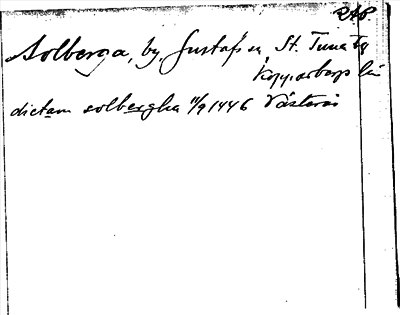 RAP.
Solberga, by, Gustafs sn St. Tuna tg
Kopparbergs län
dictam solbergha 11/9 1446 Västerås